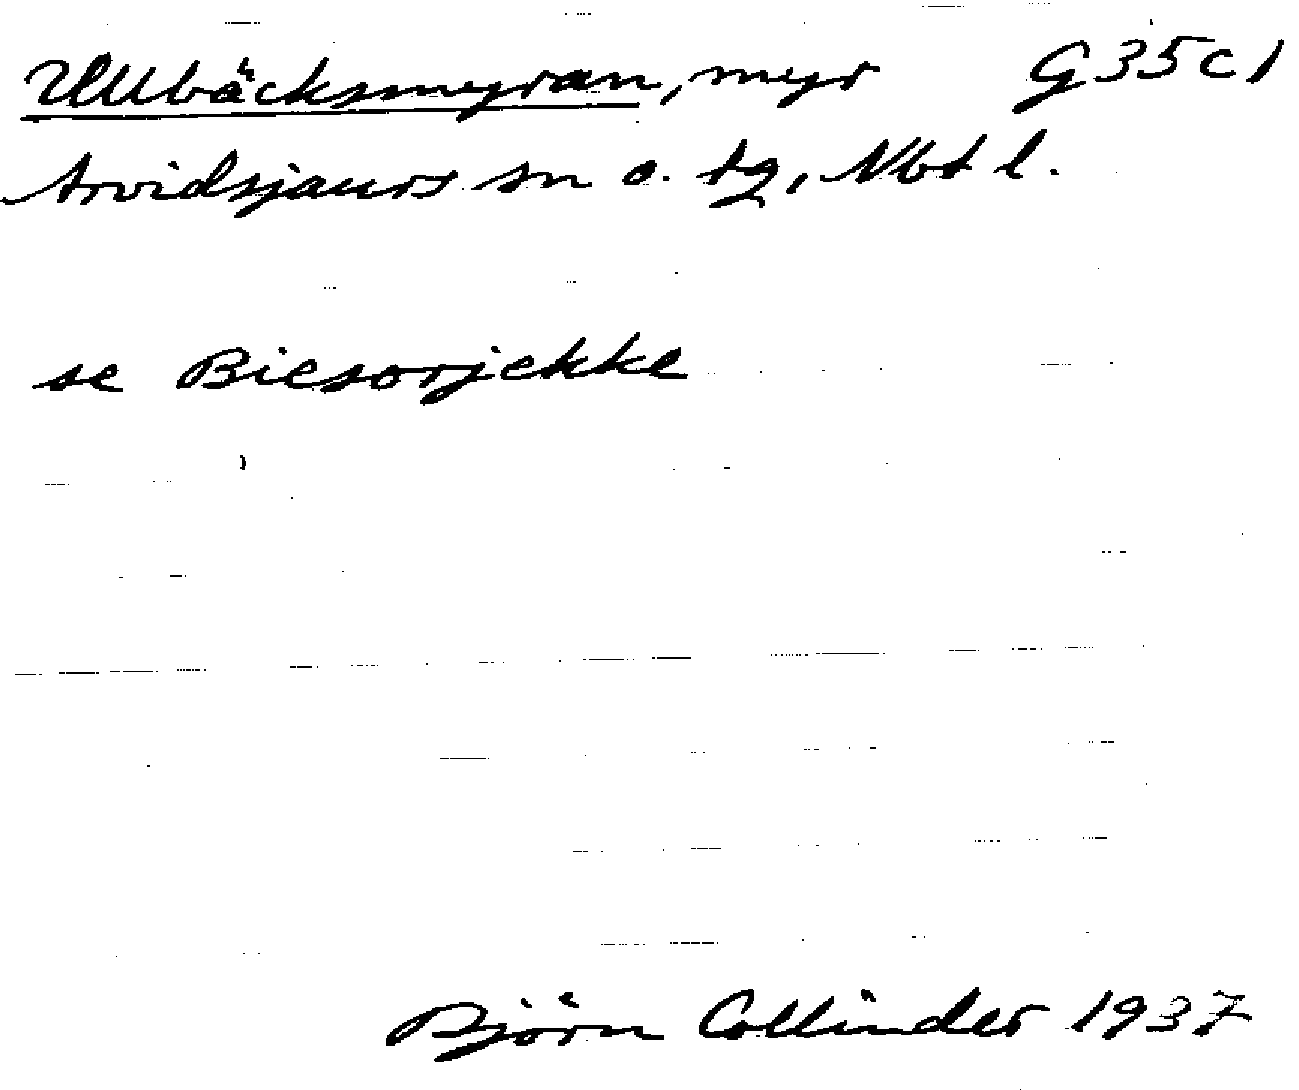 Ullbäcksmyran, myr G35c1
Arvidsjaurs sn o. tg, Nbt l.
se Biesorjekke
Björn Collinder 1937